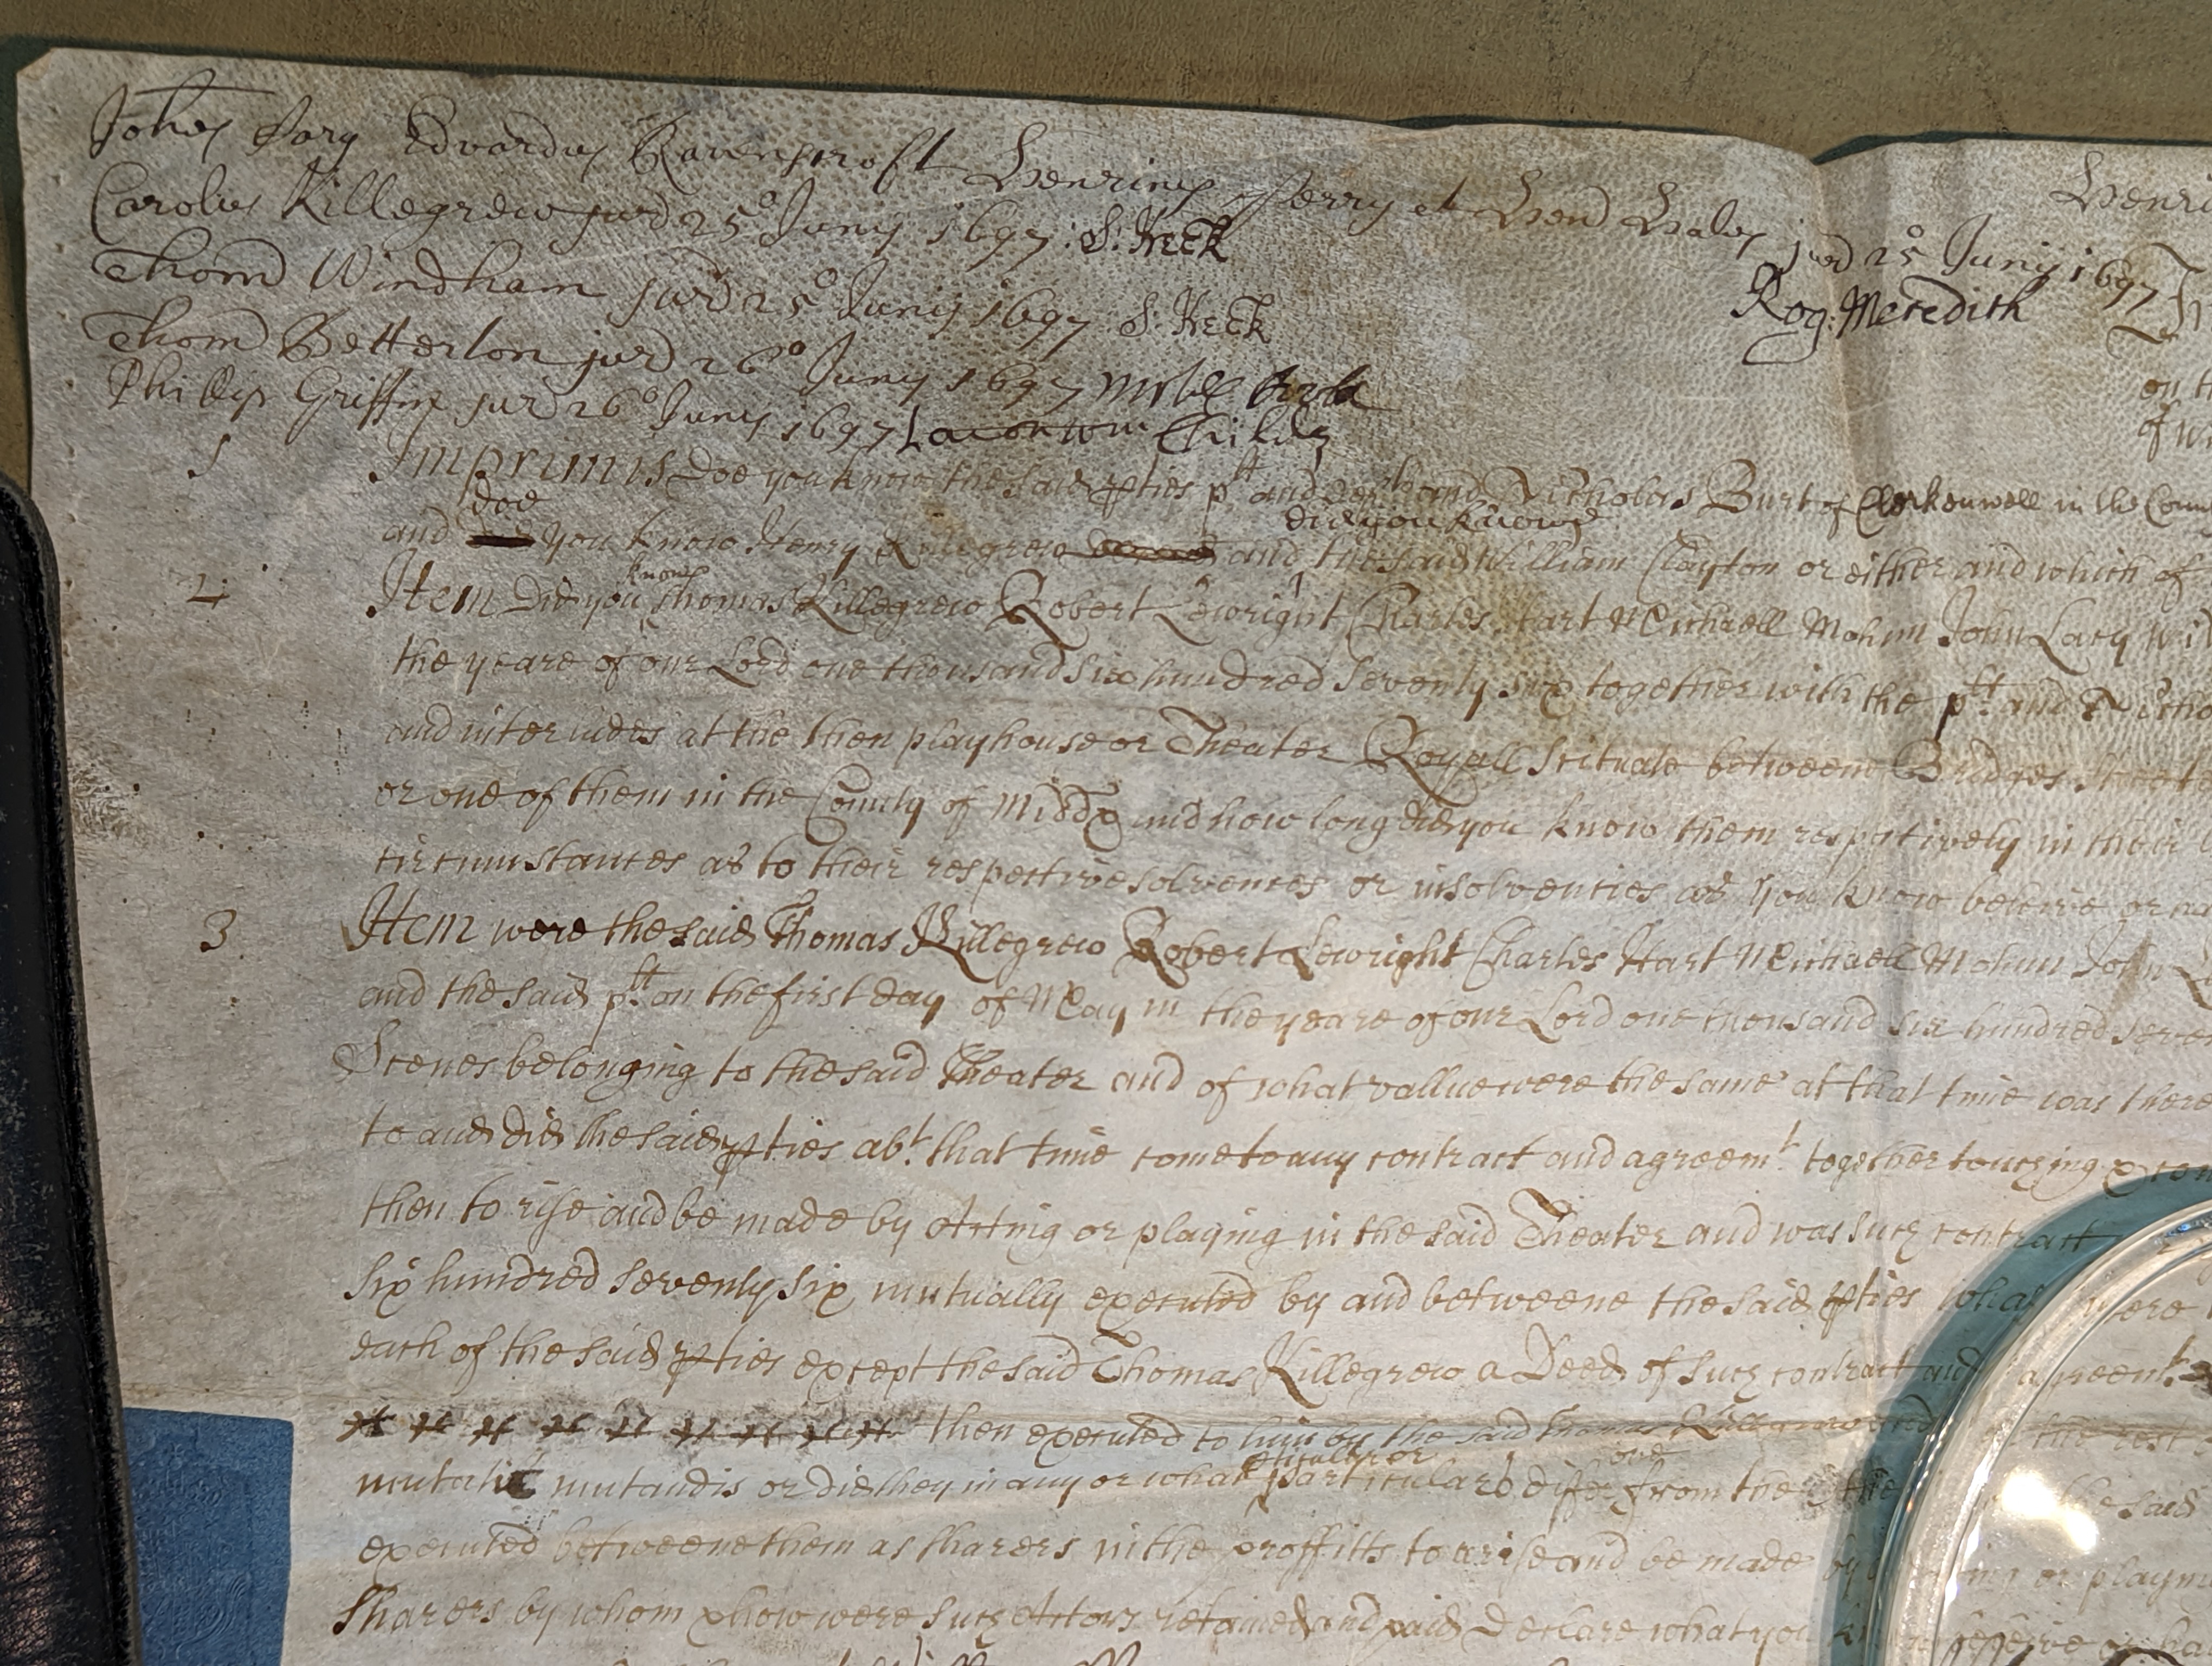 Johes Sary Edvardus Ravenscroft Henricus Perry et Hend Haley jurd 25o Junij 1697
Rog: Meredith
Henri
Carolus Killegrew jurd 25o Junij 1697: S: Keck
Thom Windham jurd 25o Junij 1697 S: Keck
Thom Betterton jurd 26o Junij 1697
Phillip Griffin jur 26o Junij 1697 Lacon Wm Childe
on t
of w
1 Imprimis Doe you know the said pties plt and and Nicholas Burt of Clerkenwell in the Coun
and doe you know Henry Killegrew and did you know the said William Clayton or either and which of
2 Item Did you know Thomas Killegrew Robert Lewright Charles Hart Michaell Mohun John Lacy Wi
the yeare of our Lord one thousand six hundred seventy six together with the plt and Nicho
and interludes at the then playhouse or Theater Royall Scituate betweene Bridges Street
or one of them in the County of Midd and how long did you know them respectively in their
circumstances as to their respective solvencies or insolvencies as you know beleive or
3 Item were the said Thomas Killegrew Robert Lewright Charles Hart Michaell Mohun John L
and the said plt on the first day of May in the yeare of our Lord one thousand six hundred seve
Scenes belonging to the said Theater and of what vallue were the same at that time was there
to and did the said pties abt that time come to any contract and agreemt together touching
then to rise and be made by Acting or playing in the said Theater and was such contract
six hundred seventy six mutually executed by and betweene the said pties what were
each of the said pties except the said Thomas Killegrew a Deed of such contract and agreemt
then executed to him by the said Thomas Killegrew and the rest
mutatis mutandis or did they in any or what pticuler or particulars differ from the one the said
executed betweene them as sharers in the proffitts to arise and be made by or playin
sharers by whom & how were such Actors retained and paid Declare what you beleive or ha